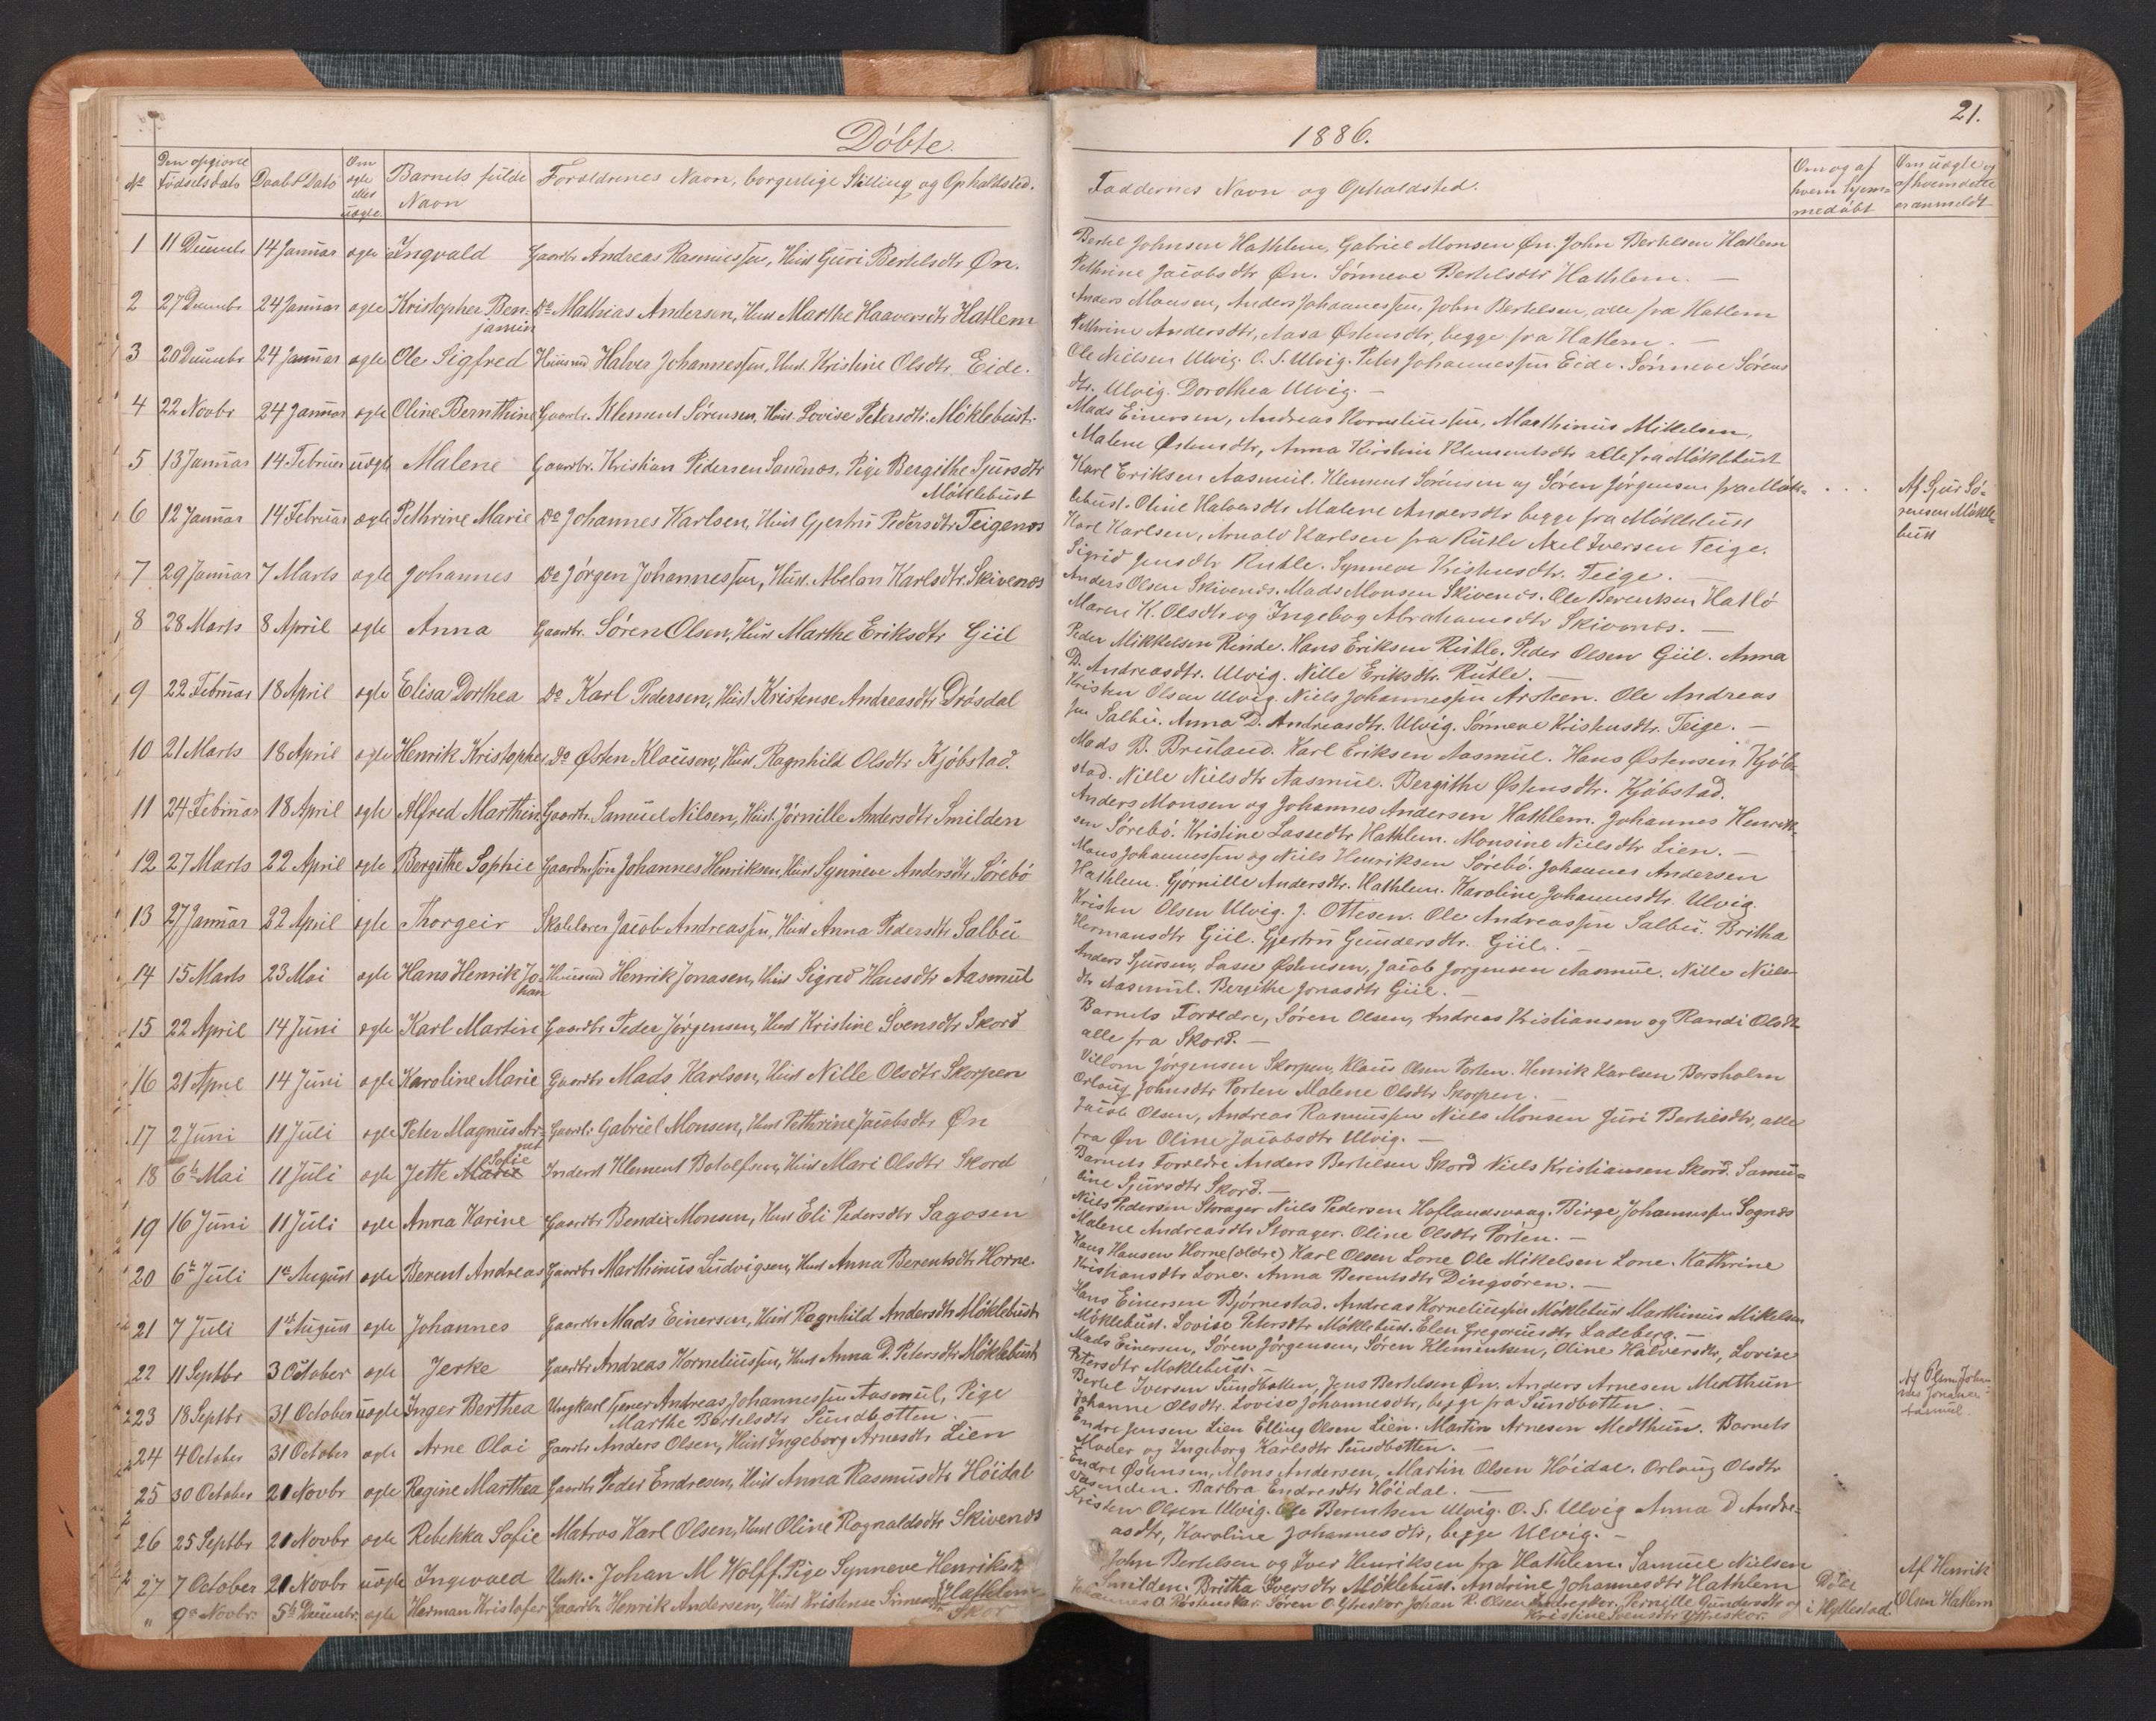 Döbte.
No
Den opgivne Födselsdato
Daabs Dato
Om ægte eller uægte
Barnets fulde Navn
Forældrenes Navn, borgerlige Stilling og Opholdsted.
1 11 Decmbr 14 Januar ægte Ingvald Gaardbr Andreas Rasmussen, Hust Guri Bertelsdtr Øn.
2 27 Decmbr 24 Januar ægte Kristopher Ben- Do Mathias Andersen, Hust Marthe Haaversdtr Hatlem
jamin
3 20 Decmbr 24 Januar ægte Ole Sigfred Huusmd Halver Johannessen, Hust. Kristine Olsdtr Eide.
4 22 Novbr 24 Januar ægte Oline Bernthine Gaardbr. Klement Sörensen, Hust. Lovise Petersdtr. Möklebust.
5 13 Januar 14 Februar uægte Malene Gaardbr. Kristian Pedersen Sandnæs, Pige Bergithe Sjursdtr
Möklebust
6 12 Januar 14 Februar ægte Pethrine Marie Do Johannes Karlsen, Hust Gjertrü Pedersdtr Teigenæs
7 29 Januar 7 Marts ægte Johannes Do Jörgen Johannessen, Hust. Abelan Karlsdtr. Skivenæs
8 28 Marts 8 April ægte Anna Gaardbr. Sören Olsen, Hust Marthe Eriksdtr Güil
9 22 Februar 18 April ægte Elisa Dorthea Do Karl Pedersen, Hust Kristense Andreasdtr Drösdal
10 21 Marts 18 April ægte Henrik Kristopher Do Østen Klausen, Hust Ragnhild Olsdtr Kjöbstad.
11 24 Februar 18 April ægte Alfred Marthin Gaardbr. Samuel Nilsen, Hust. Jörnille Andersdtr Smilden
12 27 Marts 22 April ægte Bergithe Sophie Johannes Henriksen, Hust Synneve Andersdtr Sörebö
13 27 Januar 22 April ægte Thorgeir Skolelærer Jacob Andreassen, Hust Anna Pedersdtr Salbu
14 15 Marts 23 Mai ægte Hans Henrik Jo- Huusmd Henrik Jonasen, Hust Sigred Hansdtr Aasmul
han
15 22 April 14 Juni ægte Karl Martin Gaardbr Peder Jörgensen, Hust Kristine Svensdtr Skord
16 21 April 14 Juni ægte Karoline Marie Gaardbr Mads Karlsen, Hust Nille Olsdtr Skorpen
17 2 Juni 11 Juli ægte Peter Magnus Ar- Gaardbr Gabriel Monsen, Hust Pethrine Jacobsdtr Øn
Sofie
18 6te Mai 11 Juli ægte Jette Marie Inderst Klement Botolfsen, Hust Mari Olsdtr Skord
19 16 Juni 11 Juli ægte Anna Karine Gaardbr Bendix Monsen, Hust Eli Pedersdtr Sagosen
20 6te Juli 1ste August ægte Berent Andreas Gaardbr Marthinus Ludvigsen, Hust Anna Berentsdtr Horne.
21 7 Juli 1ste August ægte Johannes Gaardbr Mads Einersen, Hust Ragnhild Andersdtr Möklebust
22 11 Septbr 3 October ægte Jerke Gaardbr Andreas Korneliussen, Hust Anna D. Petersdtr Möklebust
23 18 Septbr 31 October uægte Inger Berthea Ungkarl Tjener Andreas Johannessen Aasmul, Pige
Marthe Bertelsdtr Sundbotten.
24 4 October 31 October ægte Arne Olai Gaardbr Anders Olsen, Hust Ingeborg Arnesdtr Lien
25 30 October 21 Novbr ægte Regine Marthea Gaardbr Peder Endresen, Hust Anna Rasmusdtr Höidal
26 25 Septbr 21 Novbr ægte Rebekka Sofie Matros Karl Olsen, Hust Oline Ragnaldsdtr Skivenæs
27 7 October 21 Novbr uægte Ingvald Unk. Johan M Wolff. Pige Synneve Henriksdtr
Hathlem
" 9de Novbr. 5te Decmbr. ægte Herman Kristofer Gaardbr Henrik Andersen, Hust Kristense
Skor
1886.
21.
Faddernes Navn og Opholdsted.
Om og af hvem hjem-
medöbt
Om uægte og
af hvem dette
er anmeldt
Bertel Johnsen Hathlem, Gabriel Monsen Øn. John Bertelsen Hatlem
Pethrine Jacobsdtr Øn. Sönneve Bertelsdtr Hathlem.
Anders Monsen, Anders Johannessen, John Bertelsen, alle fra Hatlem
Pethrine Andersdtr, Aasa Østensdtr, begge fra Hatlem.
Ole Nielsen Ulvig. O. S. Ulvig. Peter Johannessen Eide. Sönneve Sörens
dtr. Ulvig. Dorothea Ulvig.
Mads Einersen, Andreas Korneliussen, Marthinus Mikelsen,
Malene Østensdtr, Anna Kirstine Klementsdtr alle fra Möklebust
Karl Eriksen Aasmul. Klement Sörensen og Sören Jörgensen fra Mök-
lebust. Oline Halversdtr Malene Andersdtr begge fra Möklebust
Af Sjur Sö-
rensen Mökle-
bust
Karl Karlsen, Arnold Karlsen fra Rutle Axel Iversen Teige.
Sigrid Jensdtr Rutle. Synneve Kristensdtr. Teige.
Anders Olsen Skivenæs. Mads Monsen Skivenæs. Ole Berentsen Hatlö
Maren K. Olsdtr og Ingebog Abrahamsdtr Skivenæs.
Peder Mikkelsen Rinde. Hans Eriksen Rutle. Peder Olsen Güil. Anna
D. Andreasdtr. Ulvig. Nille Eriksdtr. Rutle.
Kristen Olsen Ulvig. Niels Johannessen Arsteen. Ole Andreas
sen Salbu. Anna D. Andreasdtr. Ulvig. Sönneve Kristensdtr. Teige.
Mads B. Bruland. Karl Eriksen Aasmul. Hans Østensen Kjöb-
stad. Nille Nielsdtr Aasmul. Bergithe Østensdtr. Kjöbstad.
Anders Monsen og Johannes Andersen Hathlem. Johannes Henrik-
sen Sörebö. Kristine Lassedtr Hathlem. Monsine Nielsdtr Lien.
Mons Johannessen og Niels Henriksen Sörebö. Johannes Andersen
Hathlem. Gjörnille Andersdtr. Hathlem. Karoline Johannesdtr. Ulvig.
Kristen Olsen Ulvig. J. Ottesen. Ole Andreassen Salbu. Britha
Hermansdtr Güil. Gjertru Gundersdtr. Güil.
Anders Sjursen, Lasse Østensen, Jacob Jorgensen Aasmul. Nille Niels
dtr Aasmul. Bergithe Jonasdtr Güil.
Barnets Forældre, Sören Olsen, Andreas Kristiansen og Randi Olsdtr
alle fra Skord.
Villom Jörgensen Skorpen, Klaus Olsen Porten. Henrik Karlsen Borsholm
Orlaug Johnsdtr Porten Malene Olsdtr Skorpen.
Jacob Olsen, Andreas Rasmussen Niels Monsen Juri Bertelsdtr, alle
fra Øn Oline Jacobsdtr Ulvig.
Barnets Forældre Anders Bertelsen Skord Niels Kristiansen Skord. Samu-
line Sjursdtr Skord.
Niels Pedersen Storager Niels Pedersen Haflandsvaag. Birge Johannessen Sognes
Malene Andreasdtr Storager. Oline Olsdtr Porten.
Hans Hansen Horne (ældre) Karl Olsen Lone Ole Mikelsen Lone. Kathrine
Kristiansdtr Lone. Anna Berentsdtr Dingsören.
Hans Einersen Bjórnestad. Andreas Korneliussen Möklebust Marthinus Mikelsen
Möklebust. Lovise Petersdtr Möklebust. Elen Gregoriusdtr Ladeberg.
Mads Einersen, Sören Jörgensen, Sören Klementsen, Oline Halversdtr, Lovise
Petersdtr Moklebust.
Bertel Iversen Sundbotten, Jens Bertelsen Øn. Anders Arnesen Medthun
Johanne Olsdtr. Lovise Johannesdtr, begge fra Sundbotten.
Af
Aasmul.
Endre Jensen Lien Elling Olsen Lien. Martin Arnesen Medthun. Barnets
Moder og Ingeborg Karlsdtr Sundbotten.
Endre Østensen, Mons Andersen, Martin Olsen Höidal. Orlaug Olsdtr
Barbra Endresdtr Höidal.
Kristen Olsen Ulvig. Ole Berentsen Ulvig. O. S. Ulvig Anna D Andre-
asdtr, Karoline Johannesdtr, begge Ulvig.
John Bertelsen og Iver Henriksen fra Hathlem. Samuel Nielsen
Smilden. Britha Iversdtr Möklebust. Andrine Johannesdtr Hathlem
Af Henrik
Olsen Hatlem
Sören O. Ytreskor Johan R. Olsen Pernille Gundersdtr og
Kristine Svensdtr Ytreskor.
Döbt
i Hyllestad.